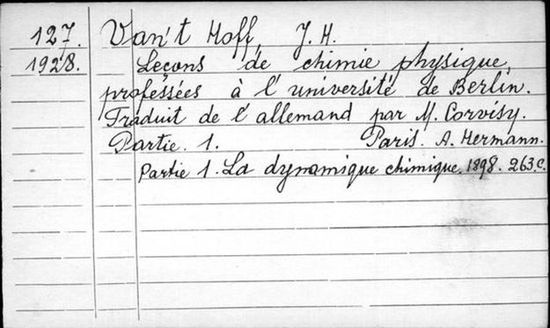 127. Van't Hoff J. H.
1928. Leçons de chimie physique,
professées à l'université de Berlin.
Traduit de l'allemand par M. Corvisy.
Partie. 1. Paris. A. Hermann.
Partie 1. La dynamique chimique. 1898. 263.c.